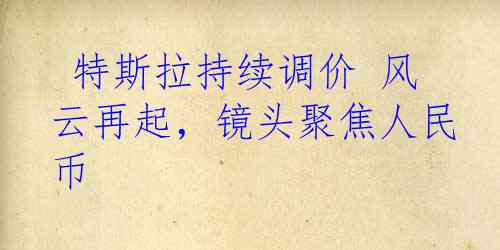 特斯拉持续调价 风
云再起，镜头聚焦人民
币